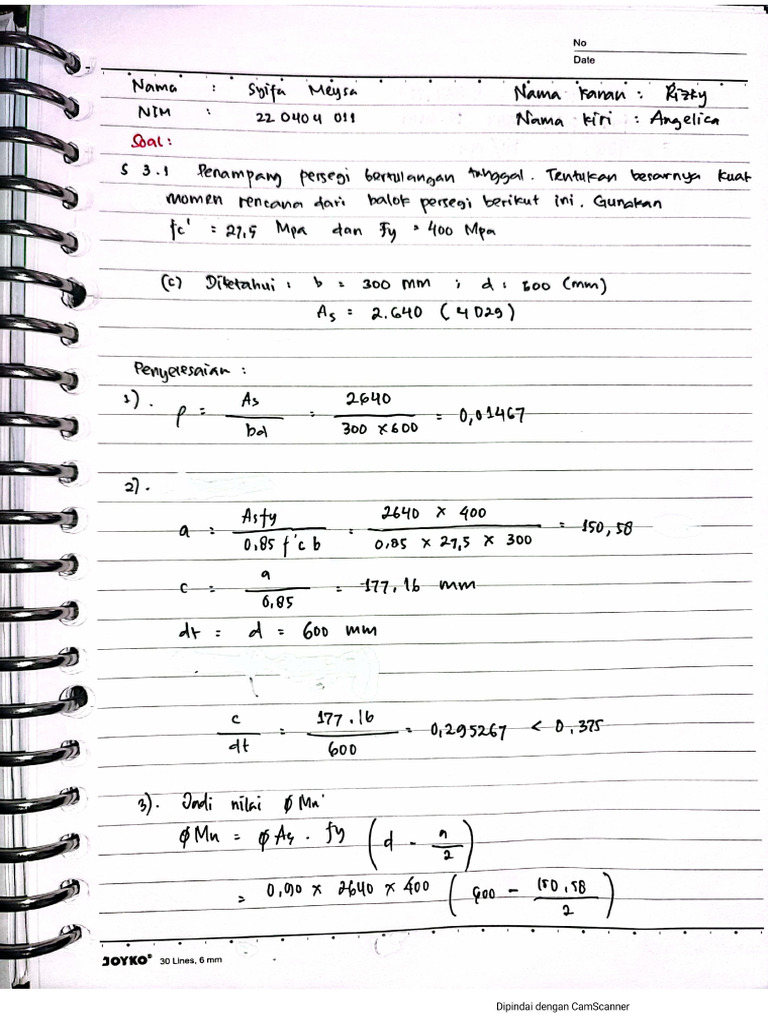 No
Date
Nama : Syifa Meysa Nama Kanan : Rizky
NIM : 22 0404 011 Nama Kiri : Angelica
Soal :
S 3.1 Penampang persegi bertulangan tunggal. Tentukan besarnya kuat
momen rencana dari balok persegi berikut ini. Gunakan
fc' = 27,5 Mpa dan Fy = 400 Mpa
(c) Diketahui : b = 300 mm ; d : 600 (mm)
As = 2.640 (4 D29)
Penyelesaian :
1). ρ = As / bd = 2640 / 300 × 600 = 0,01467
2).
a = Asfy / 0,85 f'c b = 2640 × 400 / 0,85 × 27,5 × 300 = 150,58
c = a / 0,85 = 177,16 mm
dt = d = 600 mm
c / dt = 177.16 / 600 = 0,295267 < 0,375
3). Jadi nilai ϕ Mn'
ϕ Mn = ϕ As . fy (d - a / 2)
= 0,90 × 2640 × 400 (600 - 150,58 / 2)
JOYKO® 30 Lines, 6 mm
Dipindai dengan CamScanner